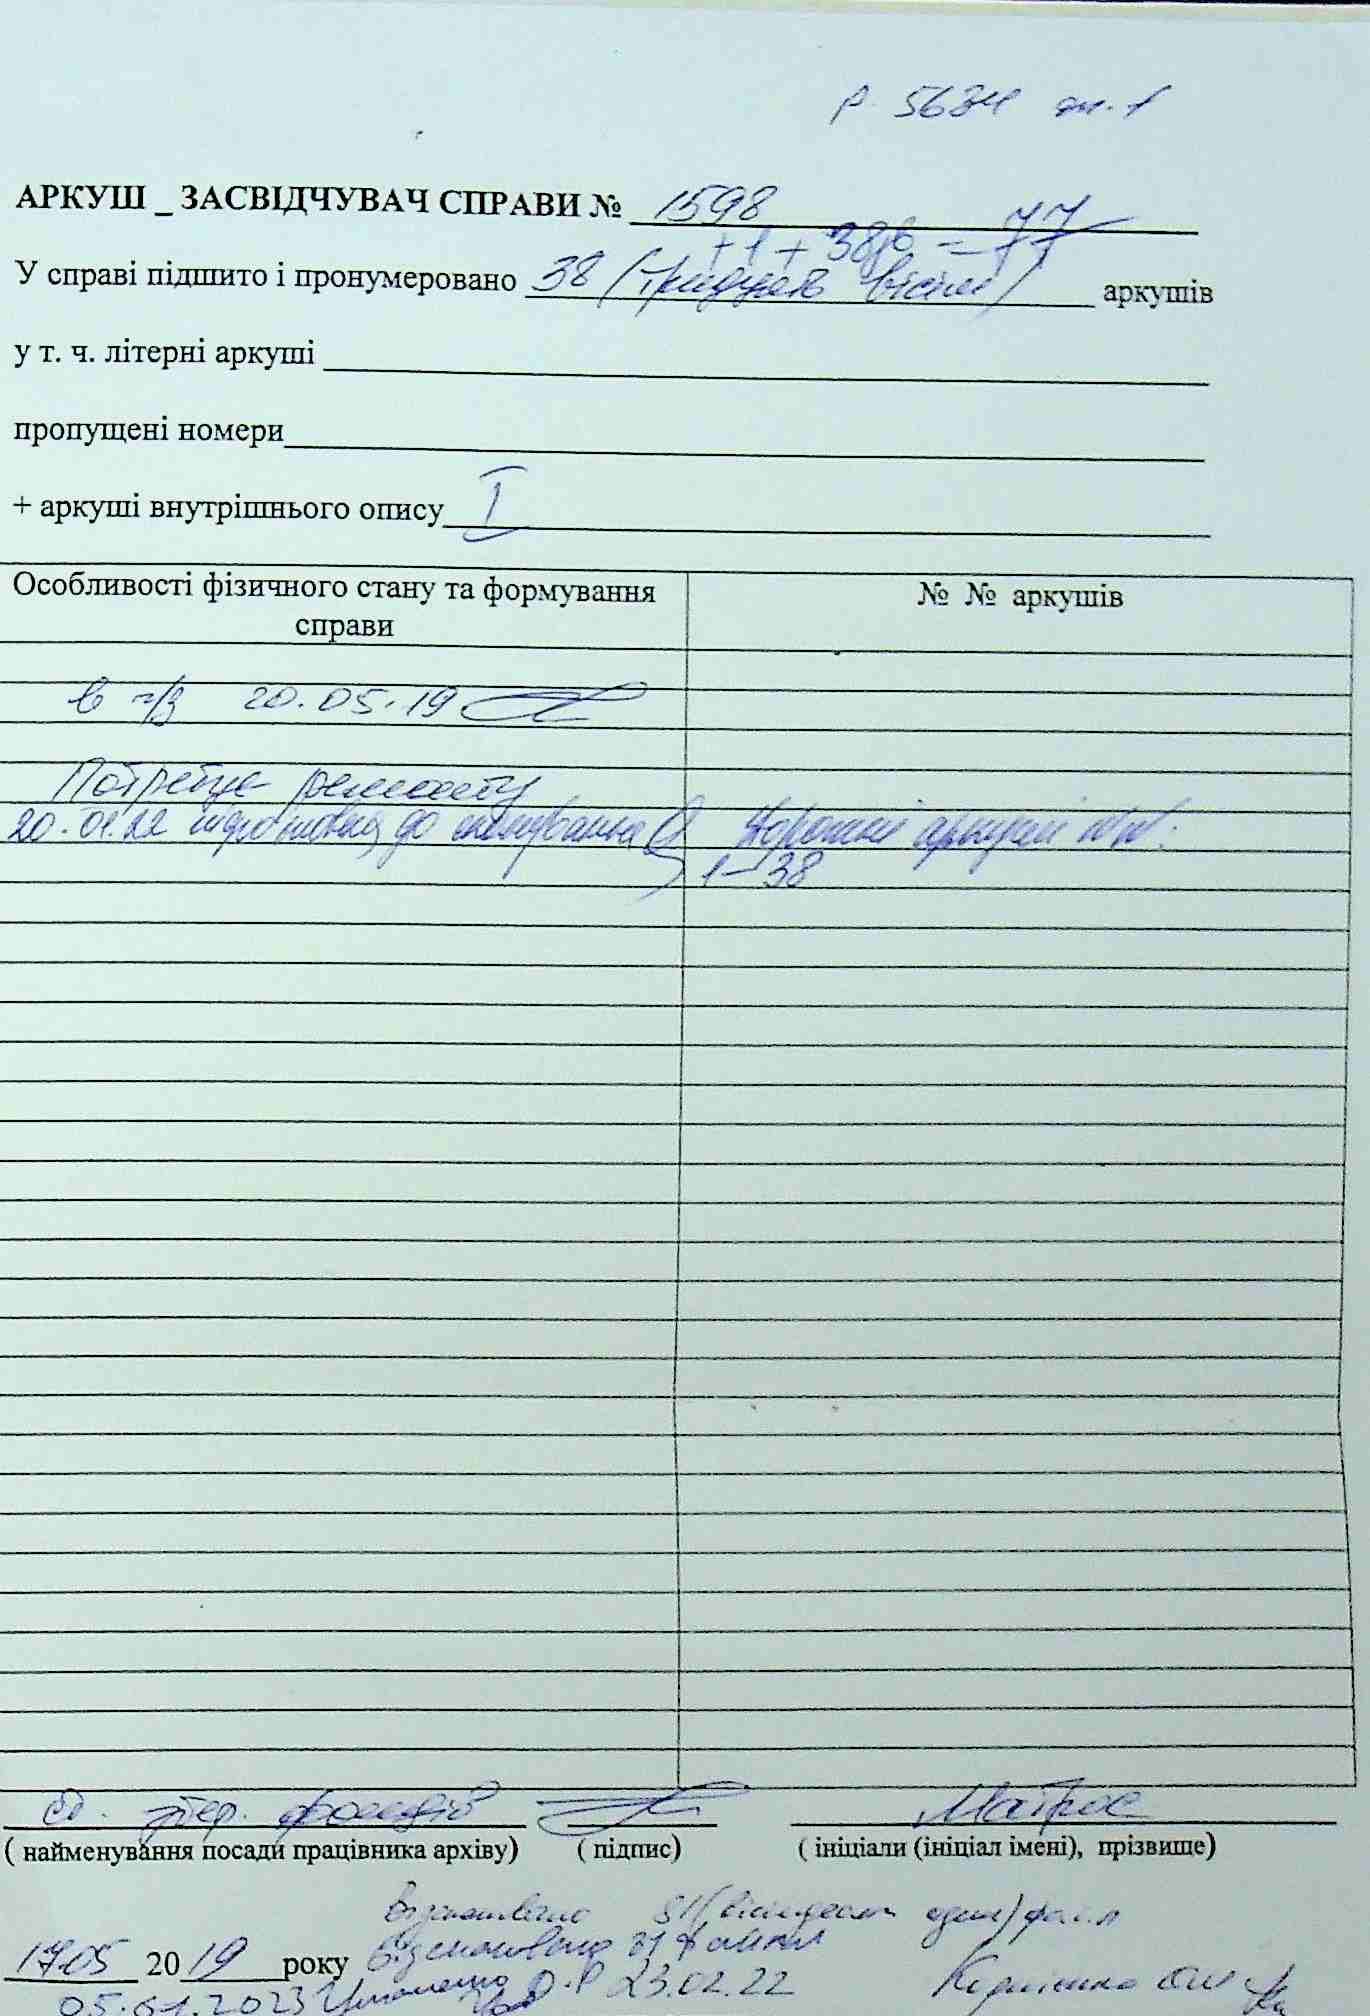 Р. 5634 оп. 1
АРКУШ _ ЗАСВІДЧУВАЧ СПРАВИ № 1598
+1 + 38зв = 77
У справі підшито і пронумеровано 38 (тридцять вісім) аркушів
у т. ч. літерні аркуші
пропущені номери
+ аркуші внутрішнього опису I
Особливості фізичного стану та формування справи
№ № аркушів
в 20.05.19
Потребує ремонту
20.01.22 до сканування
аркуші №№:
1–38
фондів
Матрос
( найменування посади працівника архіву) ( підпис) ( ініціали (ініціал імені), прізвище)
81 (вісімдесят один) файл
17.05 2019 року
23.02.22
05.01.2023